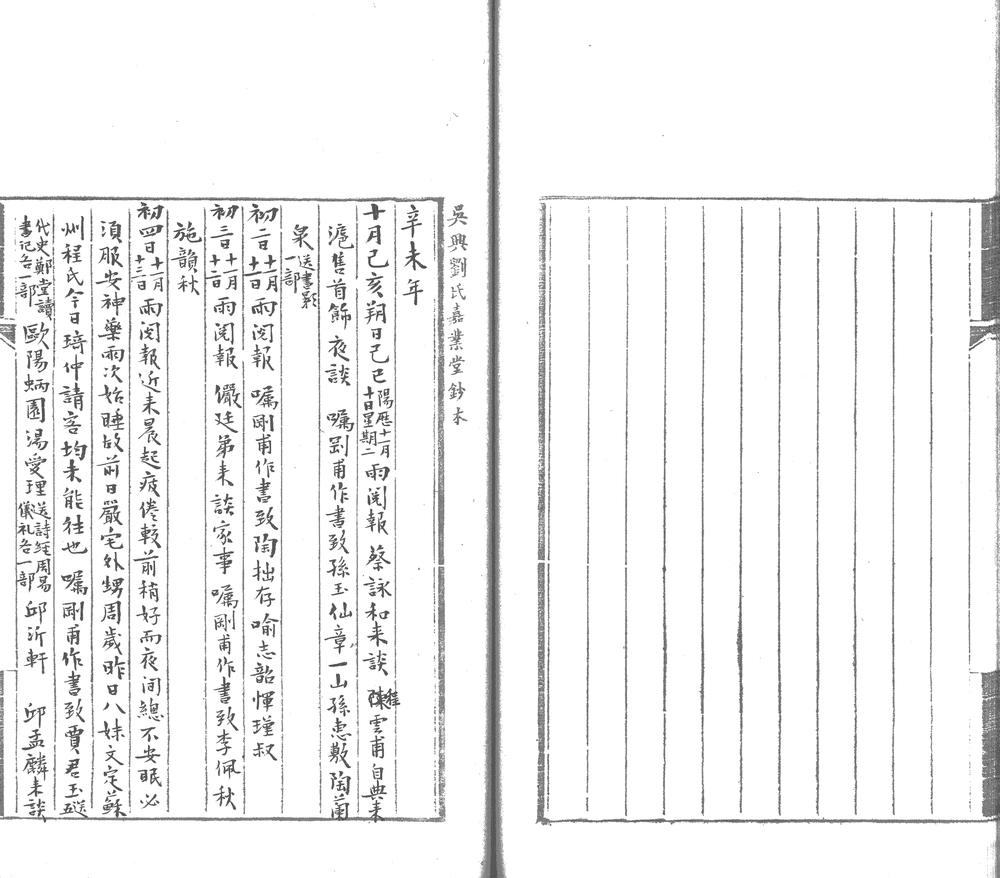 吳興劉氏嘉業堂鈔本
辛未年
十月己亥朔日己巳陽歷十一月十日星期二雨閱報　蔡詠和來談　程雲甫自典來
滬售首飾夜談　囑剛甫作書致孫玉仙章一山孫惠敷陶蘭
泉送書影一部
初二日十一月十一日雨閱報　囑剛甫作書致陶拙存喻志韶惲瑾叔
初三日十一月十二日雨閱報　儼廷弟來談家事　囑剛甫作書致李佩秋
施韻秋
初四日十一月十三日雨閱報近來晨起疲倦較前稍好而夜间總不安眠必
須服安神藥兩次始睡故前日嚴宅外甥周歲昨日八妹文定蘇
州程氏今日琦仲請客均未能往也　囑剛甫作書致賈君玉送五
代史鄭堂讀書記各一部　歐陽蛃園　湯愛理送詩經周易儀礼各一部　邱沂軒　邱孟麟来談